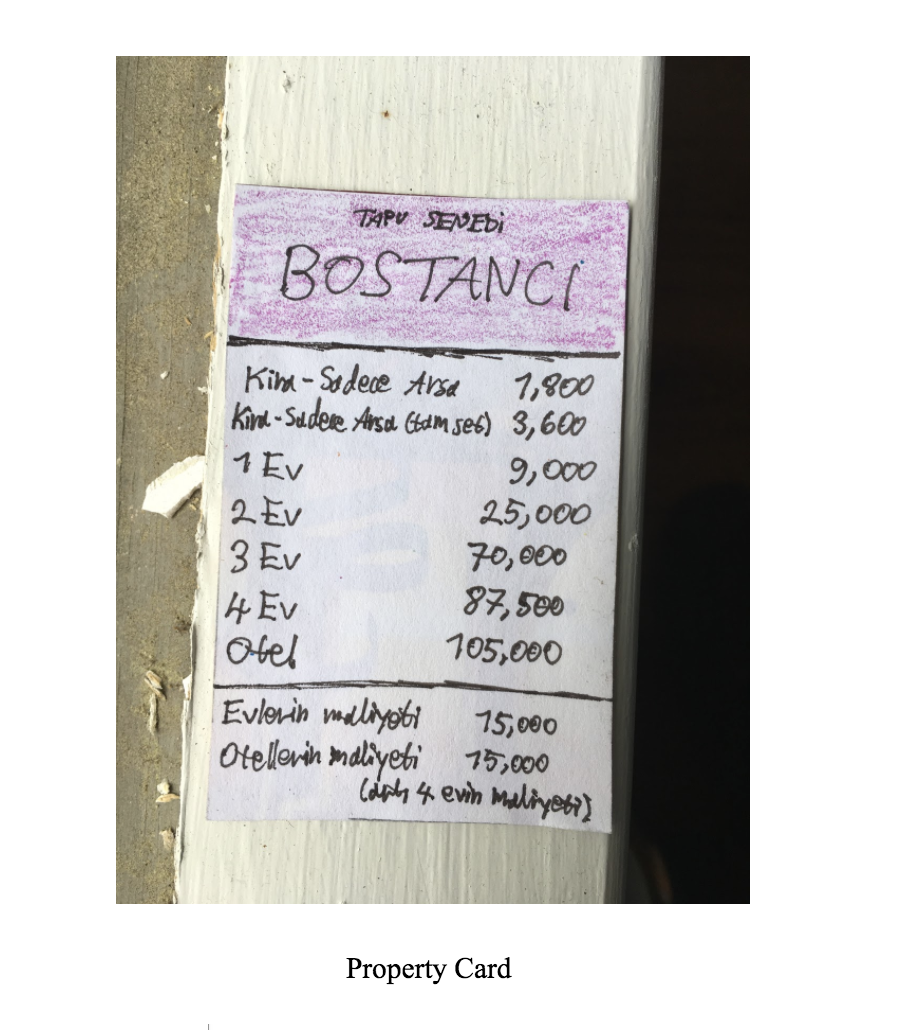 TAPU SENEDİ
BOSTANCI
Kira-Sadece Arsa 1,800
Kira-Sadece Arsa (tam set) 3,600
1 Ev 9,000
2 Ev 25,000
3 Ev 70,000
4 Ev 87,500
Otel 105,000
Evlerin maliyeti 15,000
Otellerin maliyeti 15,000
(artı 4 evin maliyeti)
Property Card